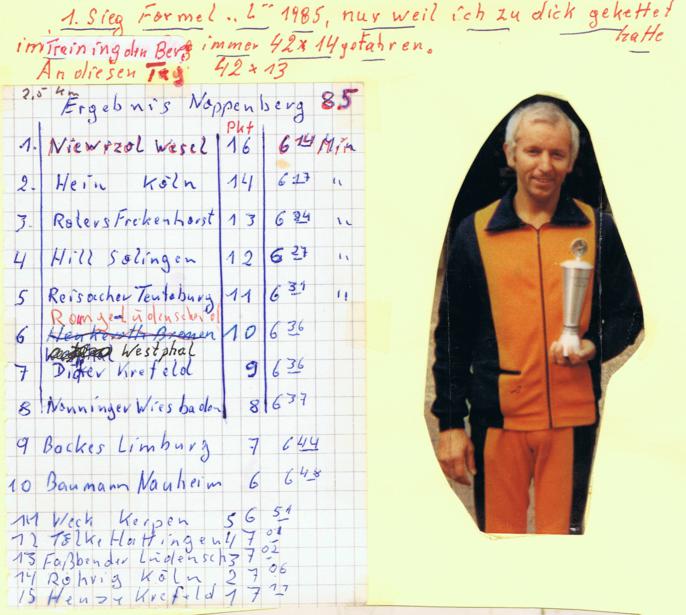 1. Sieg Formel "L" 1985, nur weil ich zu dick gekettet hatte
im Training den Berg immer 42 x 14 gefahren.
An diesen Tag 42 x 13
2,5 km
Ergebnis Noppenberg 85
Pkt
1. Niewrzol Wesel 16 6 14 Min
2. Hein Köln 14 6 17 "
3. Rolers Frekenhorst 13 6 24 "
4 Hill Solingen 12 6 27 "
5 Reisacher Teutoburg 11 6 31 "
Range Lüdenscheid
6 Henkeroth Bremen 10 6 36
Westphal
7 Dieter Krefeld 9 6 36
8 Nonninger Wiesbaden 8 6 37
9 Backes Limburg 7 6 44
10 Baumann Nauheim 6 6
11 Weck Kerpen 5 6 51
12 Tölke Hattingen 4 7 01
13 Faßbender Lüdensch 3 7 02
14 Röhrig Köln 2 7 06
15 Henze Krefeld 1 7